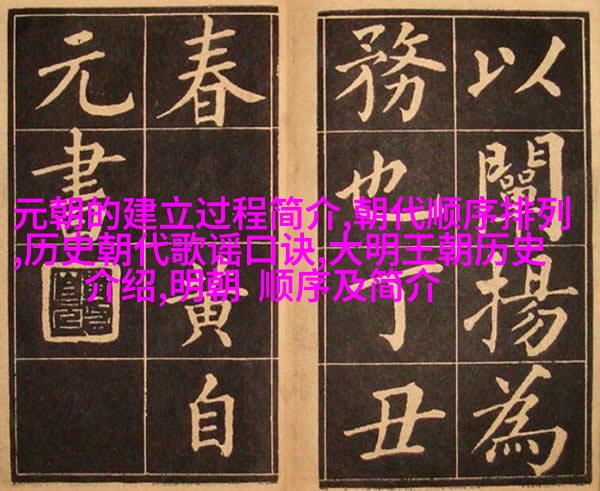 元朝的建立过程简介,朝代顺序排列
,历史朝代歌谣口诀,大明王朝历史
介绍,明朝 顺序及简介
以闡揚為
務也丁丑
春黄自
元書